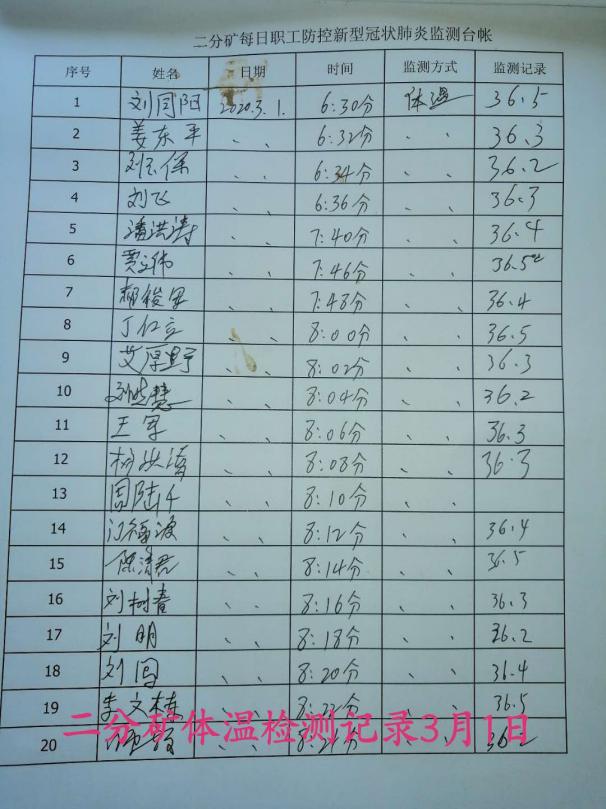 二分矿每日职工防控新型冠状肺炎监测台帐
序号 姓名 日期 时间 监测方式 监测记录
1 刘闯阳 2020.3.1. 6:30分 体温 36.5
2 姜东平 、 、 6:32分 、 、 36.3
3 6:34分 、 、 36.2
4 刘飞 、 、 6:36分 、 、 36.3
5 潘洪涛 、 、 7:40分 、 、 36.4
6 贾立伟 、 、 7:46分 、 、 36.5
7 、 、 7:48分 、 、 36.4
8 丁仁立 、 、 8:00分 、 、 36.5
9 、 、 8:02分 、 、 36.3
10 、 、 8:04分 、 、 36.2
11 王军 、 、 8:06分 、 、 36.3
12 、 、 8:08分 、 、 36.3
13 、 、 8:10分 、 、
14 、 、 8:12分 、 、 36.4
15 、 、 8:14分 、 、 36.5
16 刘树春 、 、 8:16分 、 、 36.3
17 刘明 、 、 8:18分 、 、 36.2
18 刘闯 、 、 8:20分 、 、 36.4
19 李文栋 、 、 8:22分 、 、 36.5
二分矿体温检测记录3月1日
20 、 、 、 、 36.2